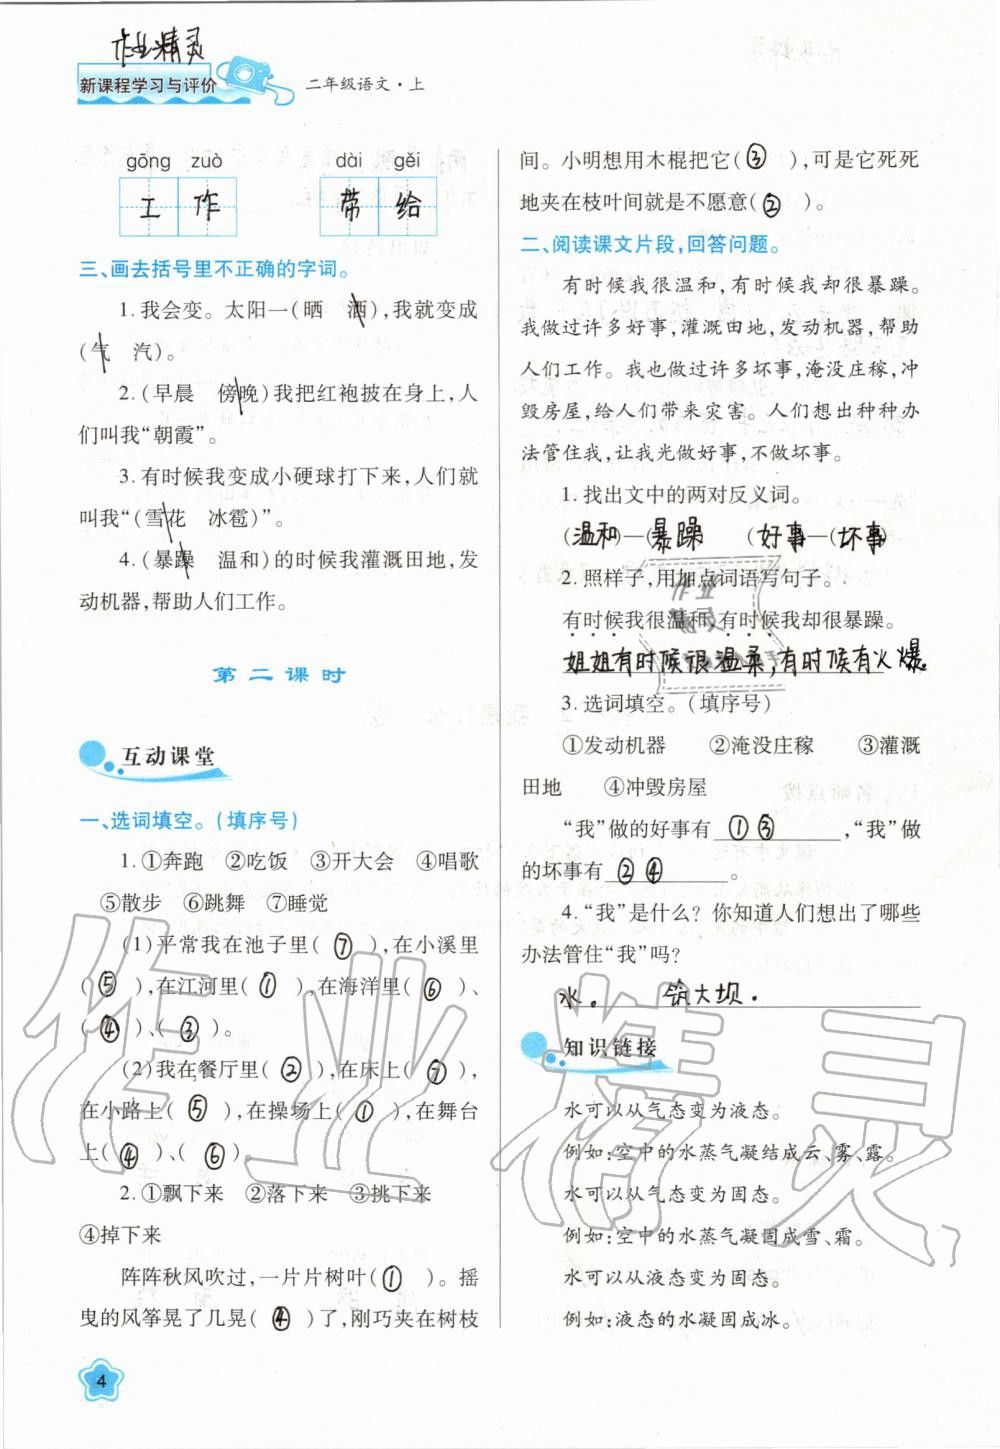 作业精灵
新课程学习与评价
二年级语文·上
gōng zuò dài gěi
工作 带给
三、画去括号里不正确的字词。
1.我会变。太阳一(晒 洒),我就变成
(气 汽)。
2.(早晨 傍晚)我把红袍披在身上,人
们叫我“朝霞”。
3.有时候我变成小硬球打下来,人们就
叫我“(雪花 冰雹)”。
4.(暴躁 温和)的时候我灌溉田地,发
动机器,帮助人们工作。
第二课时
互动课堂
一、选词填空。(填序号)
1.①奔跑 ②吃饭 ③开大会 ④唱歌
⑤散步 ⑥跳舞 ⑦睡觉
(1)平常我在池子里(⑦),在小溪里
(⑤),在江河里(①),在海洋里(⑥)、
(④)、(③)。
(2)我在餐厅里(②),在床上(⑦),
在小路上(⑤),在操场上(①),在舞台
上(④)、(⑥)。
2.①飘下来 ②落下来 ③挑下来
④掉下来
阵阵秋风吹过,一片片树叶(①)。摇
曳的风筝晃了几晃(④)了,刚巧夹在树枝
4
间。小明想用木棍把它(③),可是它死死
地夹在枝叶间就是不愿意(②)。
二、阅读课文片段,回答问题。
有时候我很温和,有时候我却很暴躁。
我做过许多好事,灌溉田地,发动机器,帮助
人们工作。我也做过许多坏事,淹没庄稼,冲
毁房屋,给人们带来灾害。人们想出种种办
法管住我,让我光做好事,不做坏事。
1.找出文中的两对反义词。
(温和)—(暴躁 (好事—(坏事)
2.照样子,用加点词语写句子。
有时候我很温和,有时候我却很暴躁。
姐姐有时候很温柔,有时候有火爆。
3.选词填空。(填序号)
①发动机器 ②淹没庄稼 ③灌溉
田地 ④冲毁房屋
“我”做的好事有①③,“我”做
的坏事有②④。
4.“我”是什么?你知道人们想出了哪些
办法管住“我”吗?
水。 筑大坝.
知识链接
水可以从气态变为液态。
例如:空中的水蒸气凝结成云、雾、露。
水可以从气态变为固态。
例如:空中的水蒸气凝固成雪、霜。
水可以从液态变为固态。
例如:液态的水凝固成冰。
作业精灵